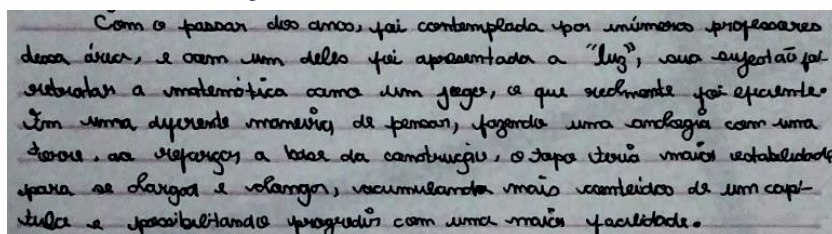 Com o passar dos anos, fui contemplada por inúmeros professores
dessa área, e com um deles fui apresentada a "luz", sua sugestão foi
retratar a matemática como um jogo, o que realmente foi eficiente.
Em uma diferente maneira de pensar, fazendo uma analogia com uma
torre, ao reforçar a base da construção, o topo teria maior estabilidade
para se alargar e, acumulando mais conteúdos de um capí-
tulo e possibilitando progredir com uma maior facilidade.